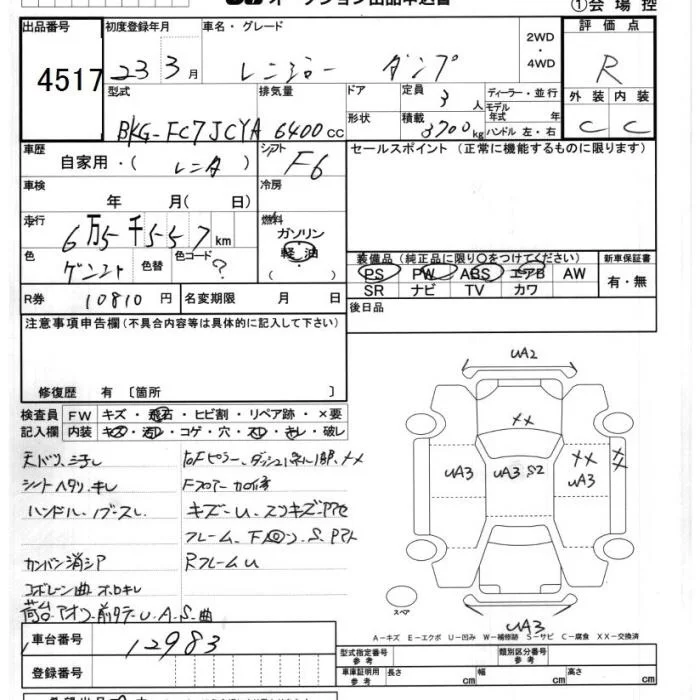 オークション出品申込書
①会場控
出品番号 4517
初度登録年月 23 3月
車名・グレード レンジャー ダンプ
2WD・4WD
評価点 R
外装 内装
C C
型式 BKG-FC7JCYA
排気量 6400cc
ドア
形状
定員 3人
積載 3700kg
ディーラー・並行
モデル年式 年
ハンドル 左・右
車歴 自家用・( レンタ )
シフト F6
セールスポイント (正常に機能するものに限ります)
車検 年 月( 日)
冷房
走行 6万5千557km
燃料 ガソリン
軽油
( )
色 ゲンコト 色替 色コード ?
装備品 (純正品に限り○をつけてください)
新車保証書
PS PW ABS エアB AW
有・無
SR ナビ TV カワ
R券 10810円 名変期限 月 日
後日品
注意事項申告欄 (不具合内容等は具体的に記入して下さい)
修復歴 有 〔箇所 〕
検査員 FW キズ・飛石・ヒビ割・リペア跡・×要
記入欄 内装 キズ・汚レ・コゲ・穴・スレ・キレ・破レ
シートヘタリ、キレ
ハンドル・ノブスレ
カンバン消シア
荷台・アオリ・前タテ・U、A、S、曲
Fフロアー加修
RフレームU
UA2
XX
UA3
UA3 S2
XX
UA3
XX
UA3
スペア
A-キズ E-エクボ U-凹み W-補修跡 S-サビ C-腐食 XX-交換済
車台番号 12983
登録番号
型式指定番号 参考
類別区分番号 参考
車庫証明用 参考 長さ cm 幅 cm 高さ cm